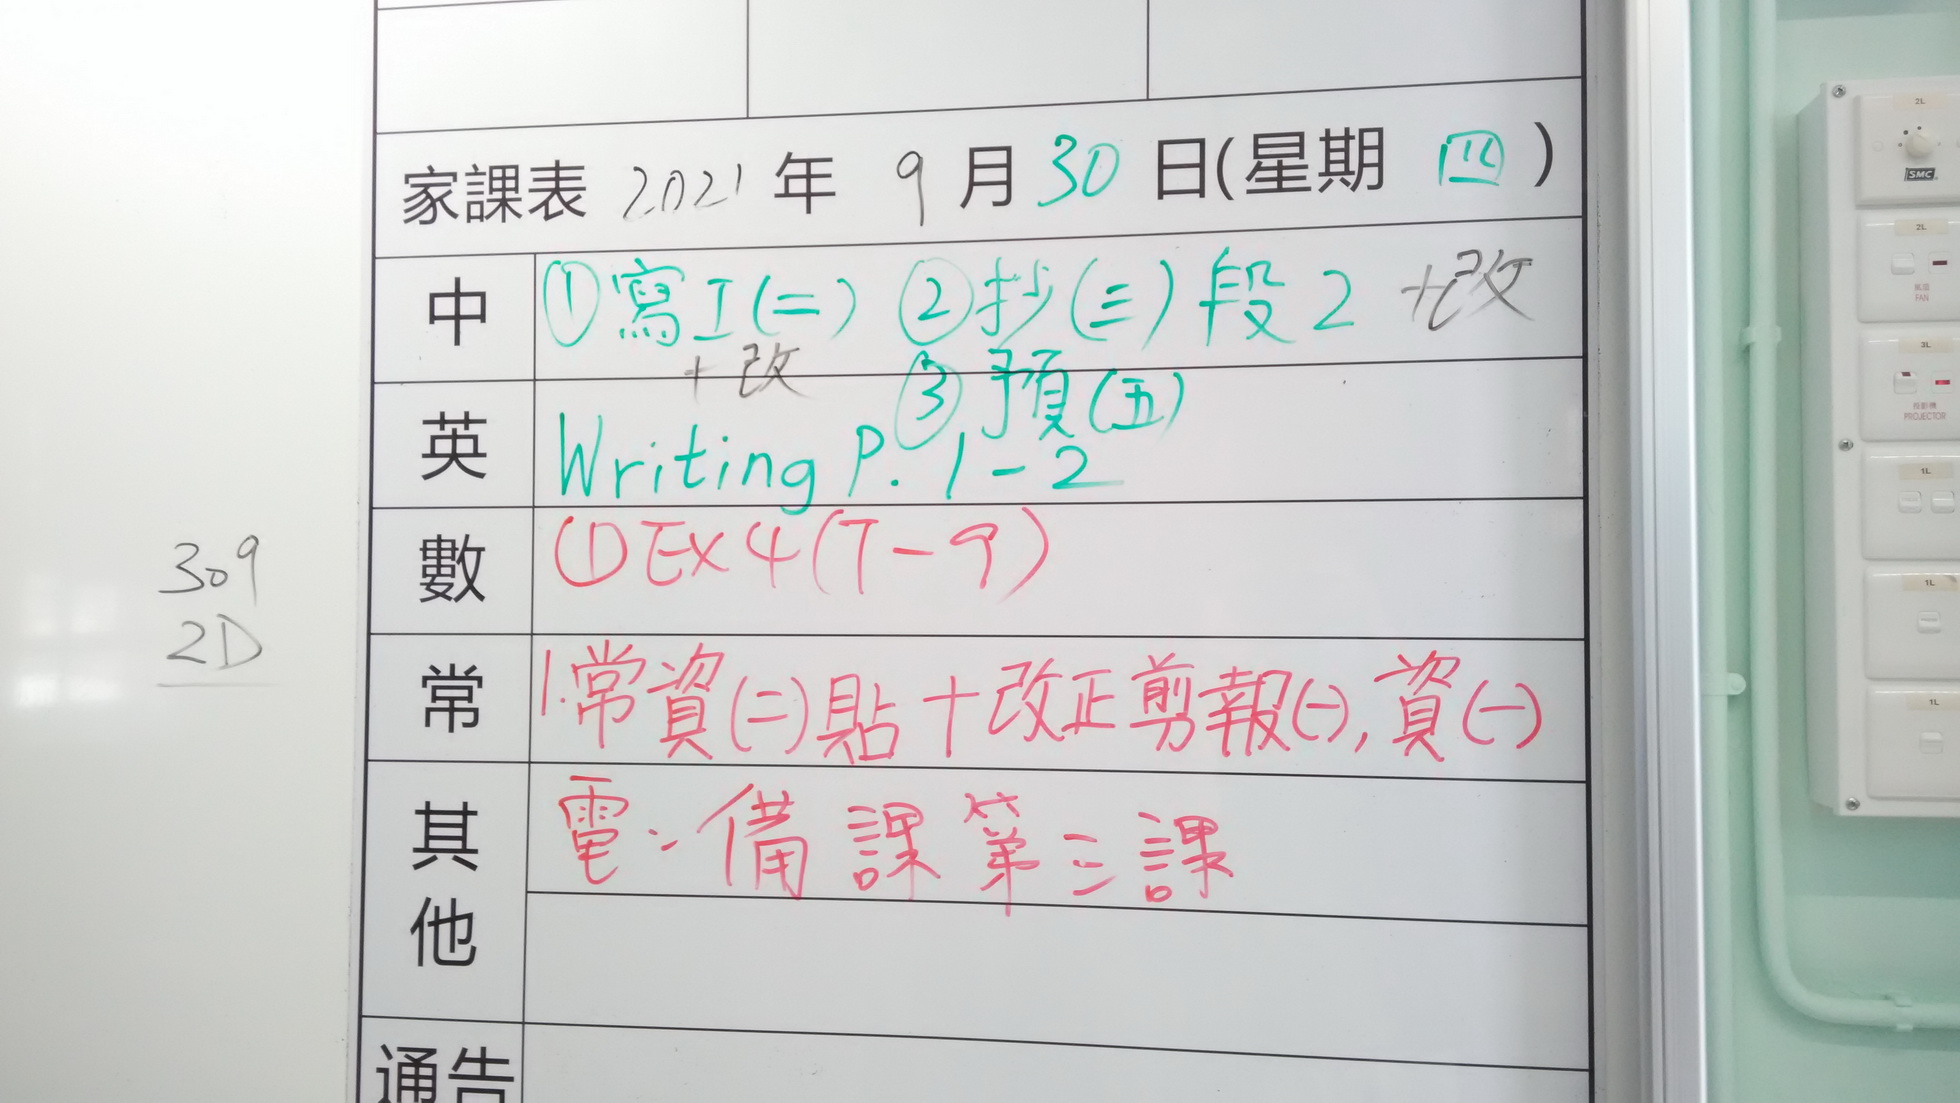 家課表 2021 年 9 月 30 日(星期 四)
中 ①寫工(二) ②抄(三)段2 +改
+改 ③預(五)
英 Writing P. 1-2
數 ①Ex4(7-9)
常 1.常資(二)貼+改正剪報(一),資(一)
其他 電:備課第三課
通告
309
2D
2L
SMC
2L
風扇
FAN
3L
投影機
PROJECTOR
1L
1L
1L